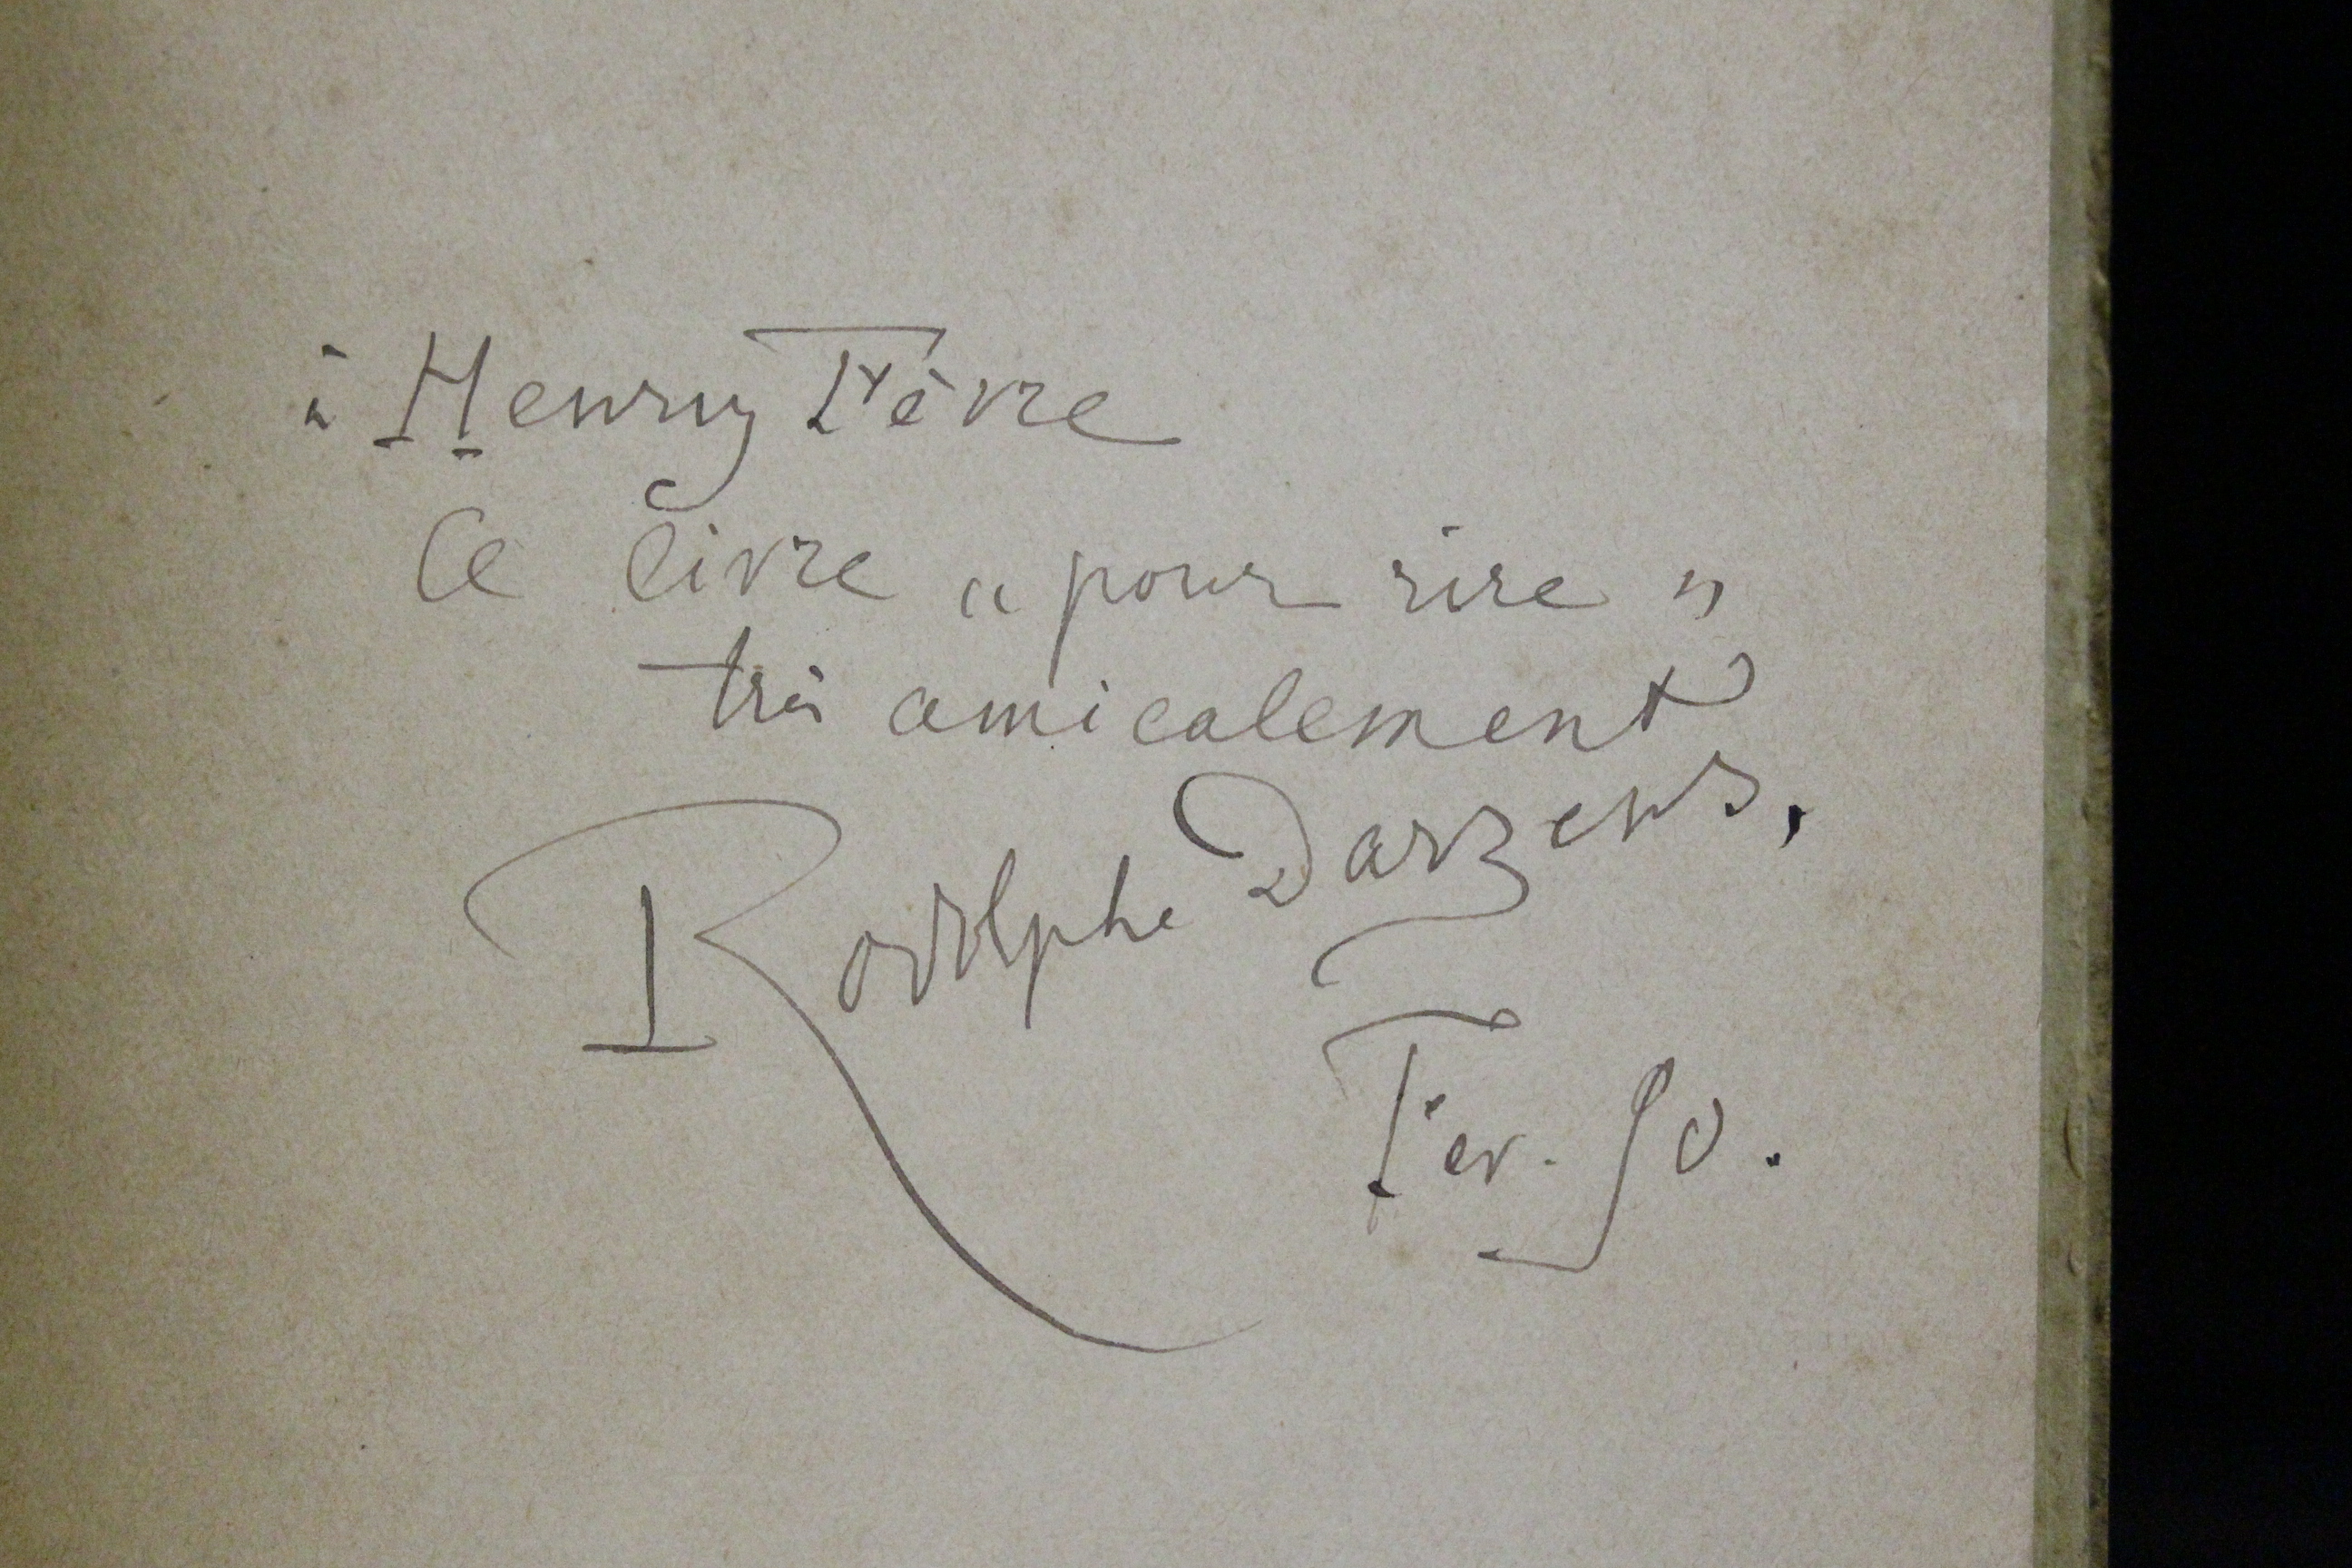 à Henry Fèvre
Ce livre « pour rire »
très amicalement
Rodolphe Darzens,
Fev. 90.